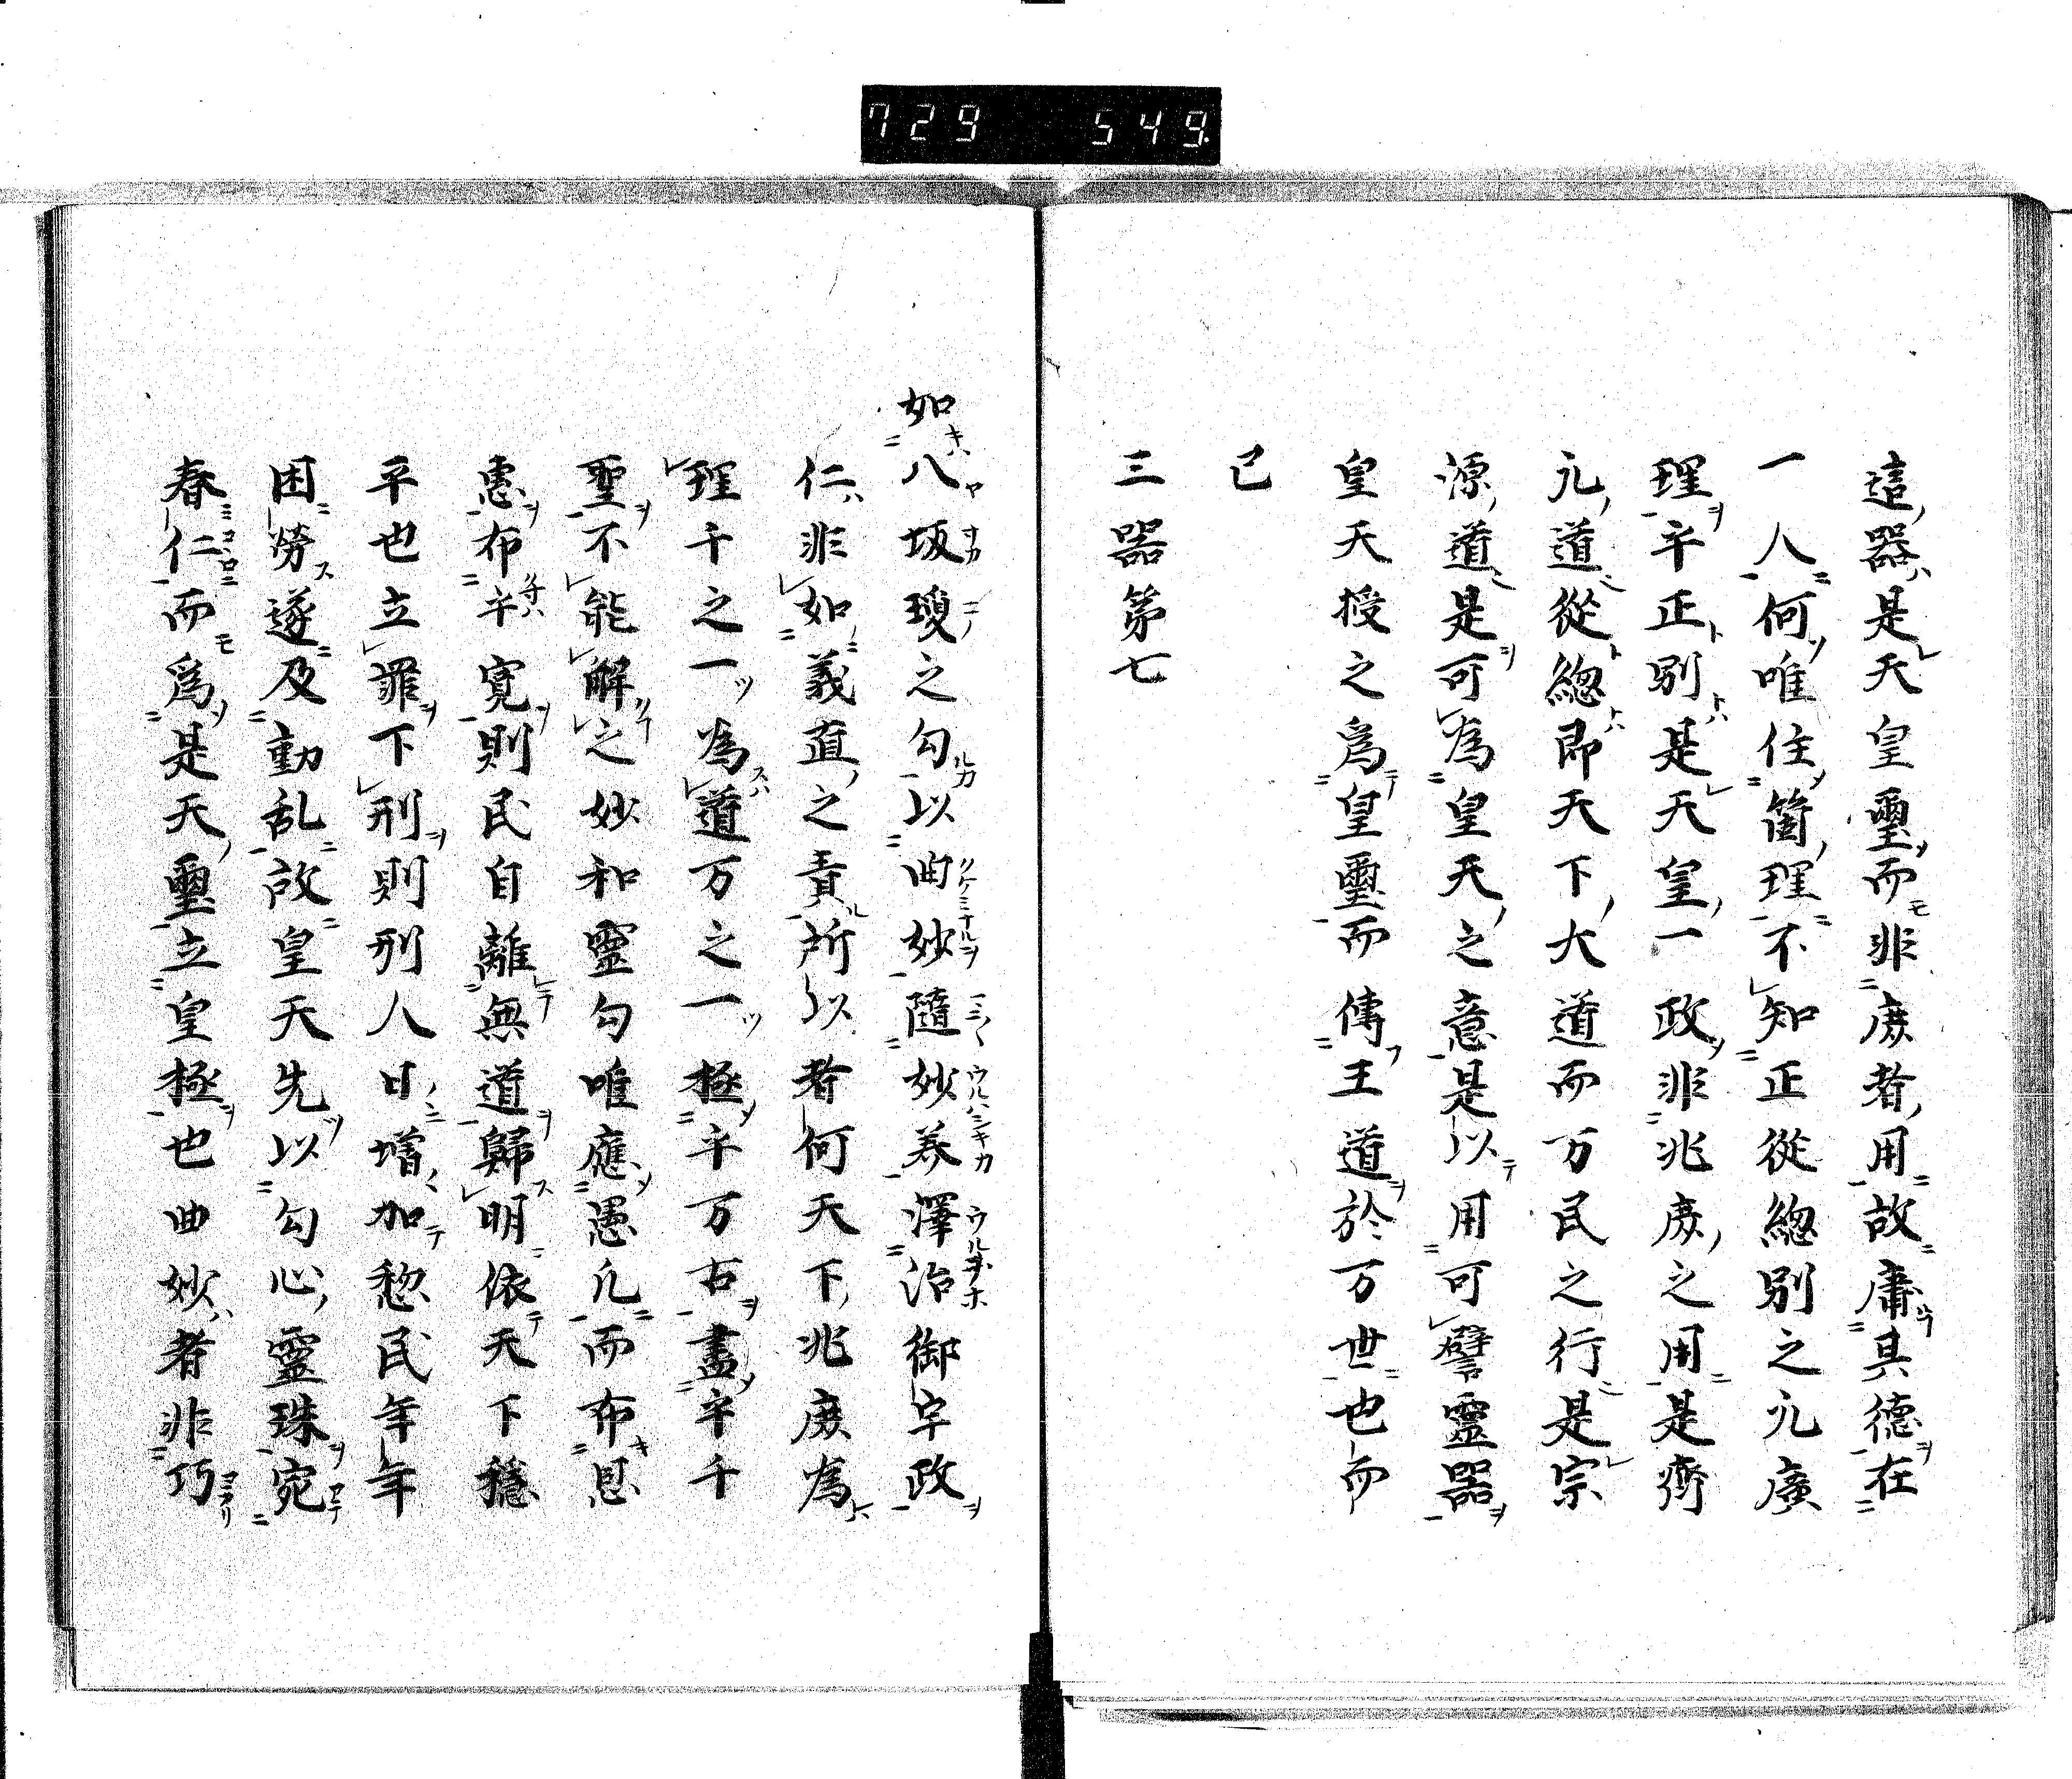 729 549.
這器是天皇璽而非庶者用故庸其德在
一人何唯住箇理不知正從總別之凢廣
理乎正別是天皇一政非兆庶之用是齊
凢道從總即天下大道而万民之行是宗
源道是可為皇天之意是以用可譬靈器
皇天授之爲皇璽而傳王道於万世也而
已
三器第七
如八坂瓊之勾以曲妙隨妙養澤治御宇政
仁非如義直之責所以者何天下兆庶為
理千之一為道万之一極乎万古盡乎千
聖不能解之妙和靈勾唯應愚凢而布恩
惠布乎寛則民自離無道歸明依天下穩
平也立罪下刑則刑人日增加愁民年年
困勞遂及動乱故皇天先以勾心靈珠宛
春仁而爲是天璽立皇極也曲妙者非巧